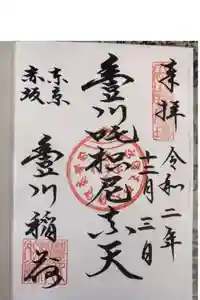 奉拝
令和二年
十二月三日
豊川吒枳尼真天
東京
赤坂
豊川稲荷